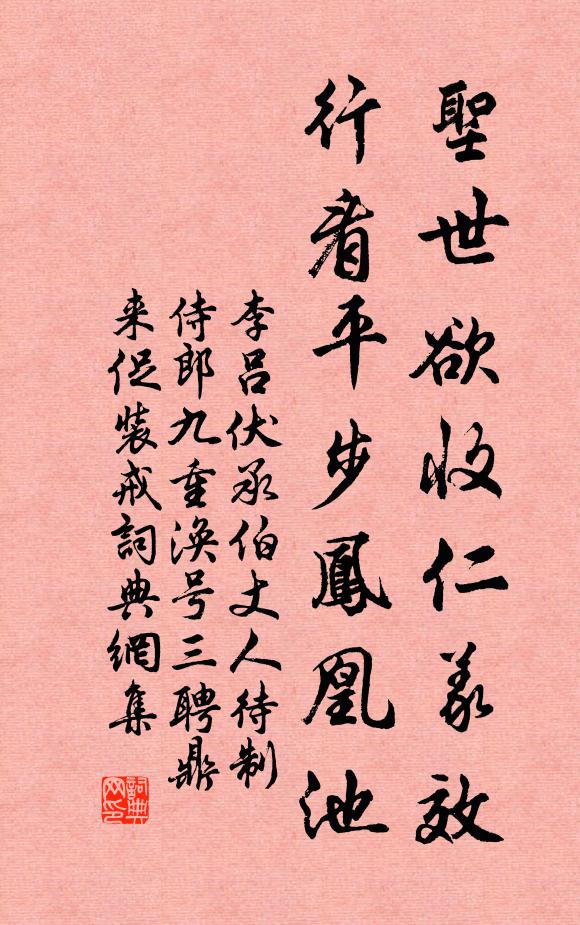 聖世欲收仁義效
行看平步鳳凰池
李吕伏承伯丈人待制
侍郎九重渙号三聘鼎
来促裝戒詞典網集
詞典網印